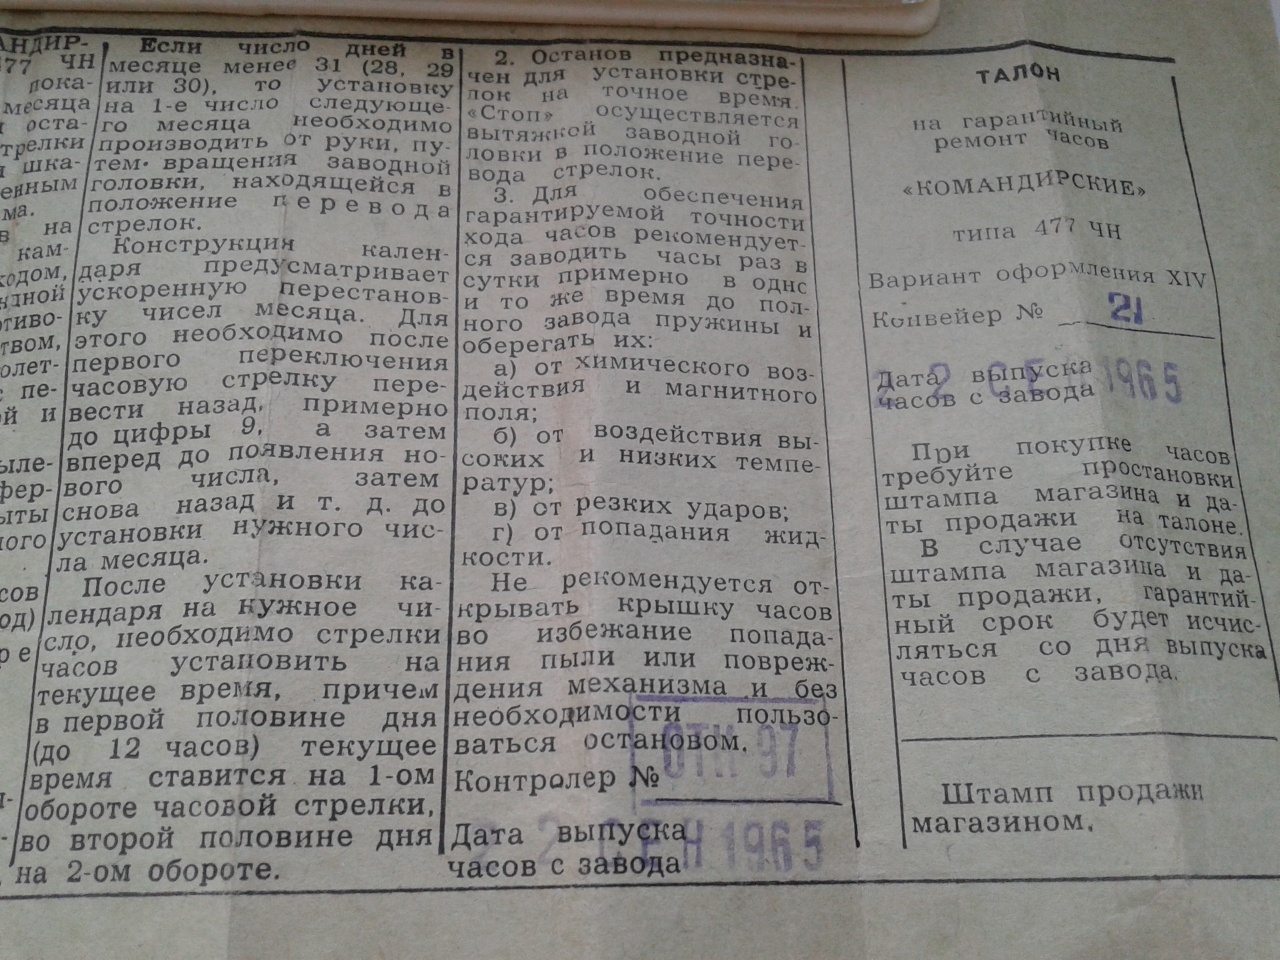 АНДИР-
477 ЧН
пока-
месяца
оста-
трелки
шка-
енным
ма.
в на
кам-
ходом,
ндной
отиво-
твом,
олет-
пе-
ой и
ыле-
фер-
ыты
ного
сов
од)
ре
Если число дней в
месяце менее 31 (28, 29
или 30), то установку
на 1-е число следующе-
го месяца необходимо
производить от руки, пу-
тем вращения заводной
головки, находящейся в
положение перевода
стрелок.
Конструкция кален-
даря предусматривает
ускоренную перестанов-
ку чисел месяца. Для
этого необходимо после
первого переключения
часовую стрелку пере-
вести назад, примерно
до цифры 9, а затем
вперед до появления но-
вого числа, затем
снова назад и т. д. до
установки нужного чис-
ла месяца.
После установки ка-
лендаря на нужное чи-
сло, необходимо стрелки
часов установить на
текущее время, причем
в первой половине дня
(до 12 часов) текущее
время ставится на 1-ом
обороте часовой стрелки,
во второй половине дня
на 2-ом обороте.
2. Останов предназна-
чен для установки стре-
лок на точное время.
«Стоп» осуществляется
вытяжкой заводной го-
ловки в положение пере-
вода стрелок.
3. Для обеспечения
гарантируемой точности
хода часов рекомендует-
ся заводить часы раз в
сутки примерно в одно
и то же время до пол-
ного завода пружины и
оберегать их:
а) от химического воз-
действия и магнитного
поля;
б) от воздействия вы-
соких и низких темпе-
ратур;
в) от резких ударов;
г) от попадания жид-
кости.
Не рекомендуется от-
крывать крышку часов
во избежание попада-
ния пыли или повреж-
дения механизма и без
необходимости пользо-
ваться остановом.
Контролер № ОТК 97
Дата выпуска
часов с завода 22 СЕН 1965
ТАЛОН
на гарантийный
ремонт часов
«КОМАНДИРСКИЕ»
типа 477 ЧН
Вариант оформления XIV
Конвейер № 21
Дата выпуска
часов с завода 22 СЕН 1965
При покупке часов
требуйте простановки
штампа магазина и да-
ты продажи на талоне.
В случае отсутствия
штампа магазина и да-
ты продажи, гарантий-
ный срок будет исчис-
ляться со дня выпуска
часов с завода.
Штамп продажи
магазином.